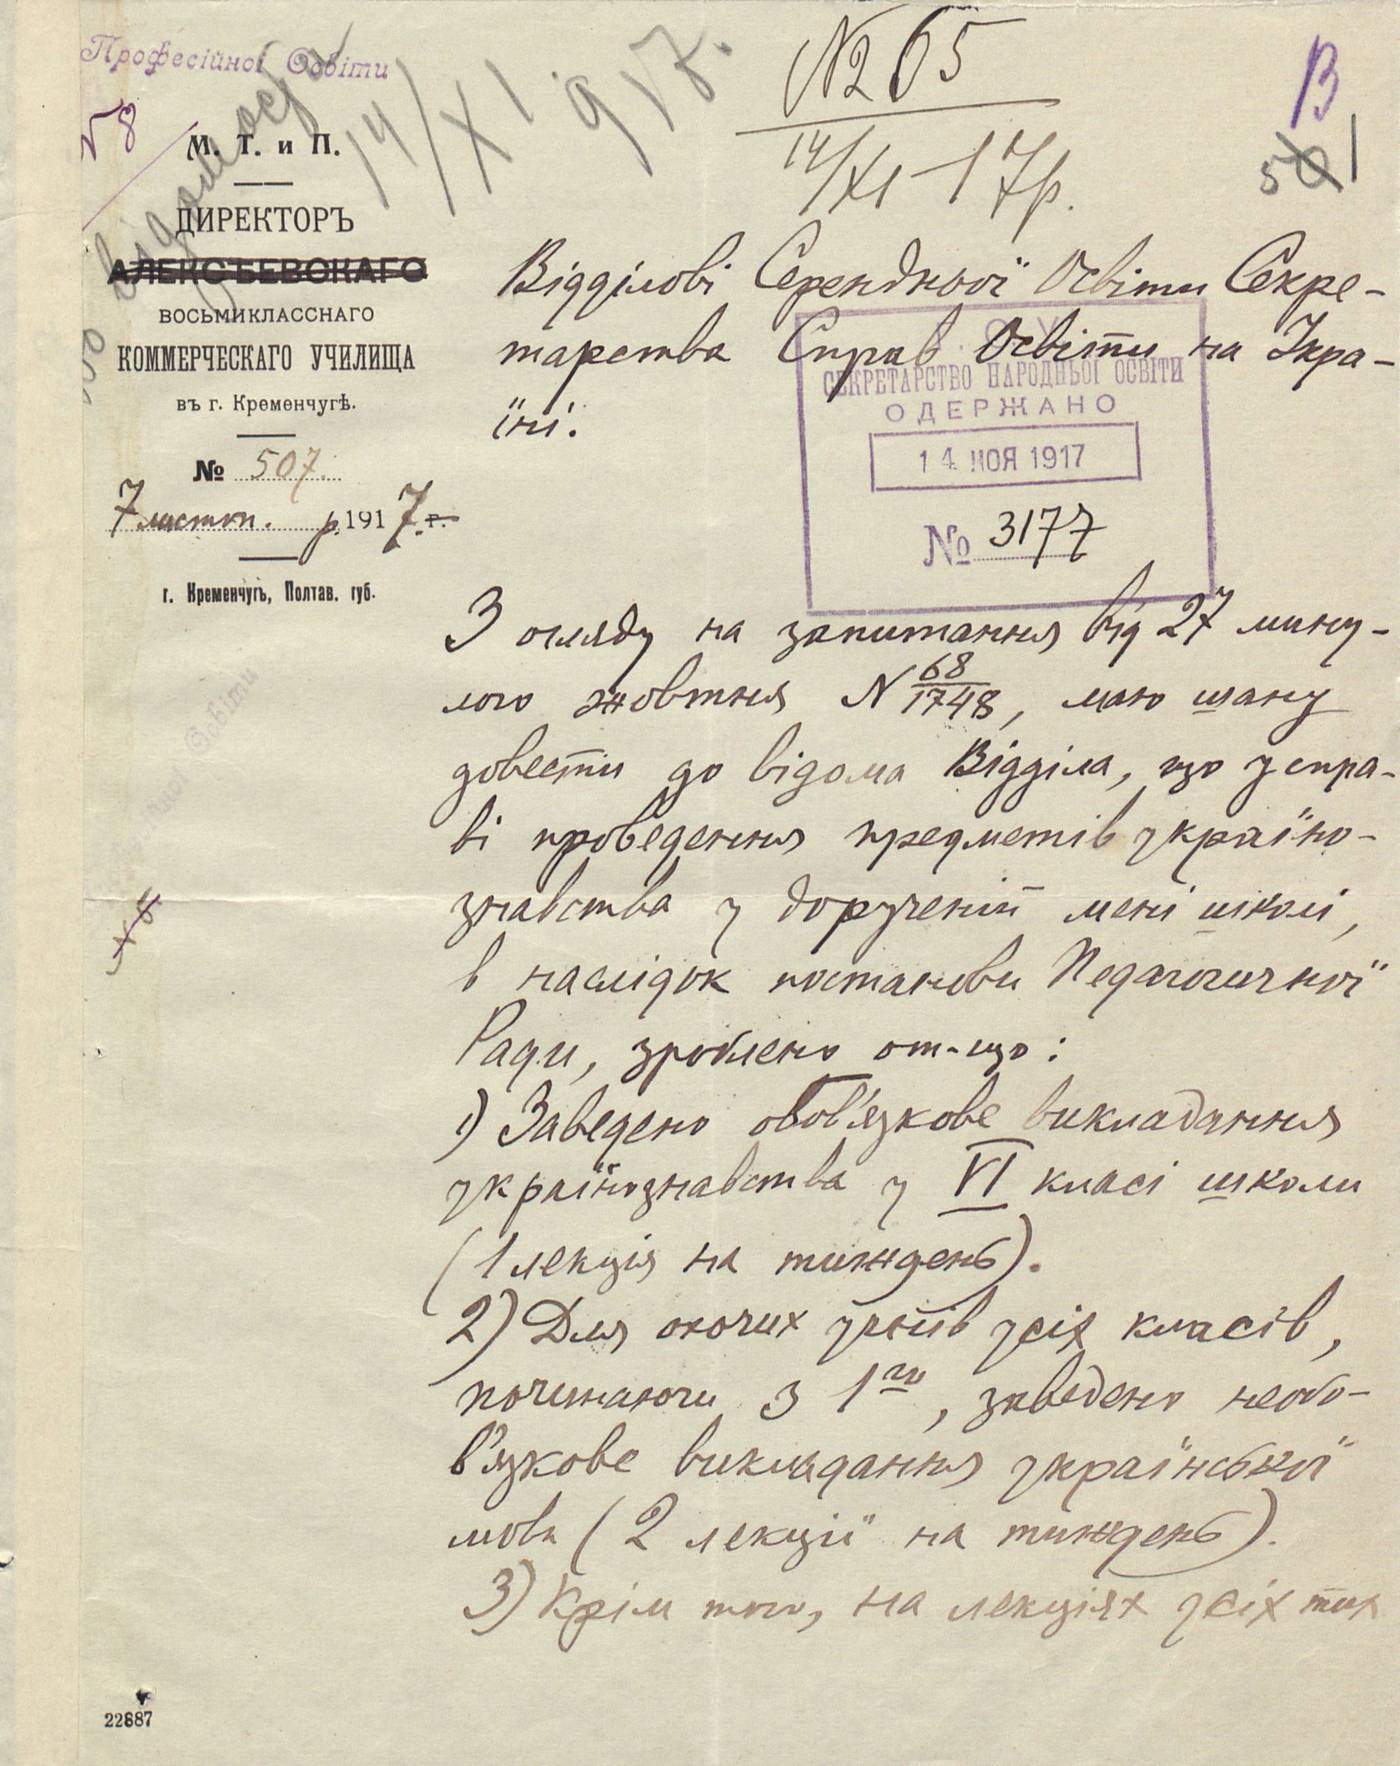 Професійної Освіти
№ 8
до відомости
14/XI 917.
№ 65
14/XI – 17р.
В
51
М. Т. и П.
ДИРЕКТОРЪ
АЛЕКСѢЕВСКАГО
ВОСЬМИКЛАССНАГО
КОММЕРЧЕСКАГО УЧИЛИЩА
въ г. Кременчугѣ.
№ 507.
7 листоп. р. 1917. г.
г. Кременчугъ, Полтав. губ.
Відділові Серендньої Освіти Секре-
тарства Справ Освіти на Укра-
їні.
СЕКРЕТАРСТВО НАРОДНЬОЇ ОСВІТИ
ОДЕРЖАНО
14 НОЯ 1917
№ 3177
З огляду на запитання від 27 мину-
лого жовтня N 68/1748, маю шану
довести до відома Відділа, що у спра-
ві проведення предметів україно-
знавства у дорученій мені школі,
в наслідок постанови Педагогичної
Ради, зроблено от-що:
1) Заведено обов'язкове викладання
українознавства у VI класі школи
(1 лекція на тиждень).
2) Для охочих учнів усіх класів,
починаючи з 1го, заведено необо-
в'язкове викладання української
мови (2 лекції на тиждень).
3) Крім того, на лекціях усіх тих
22887